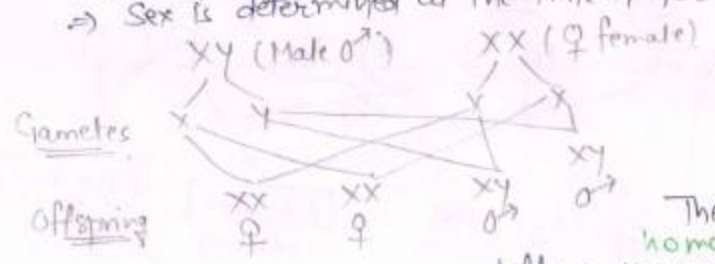 ⇒ Sex is determined at the time of
XY (Male ♂) XX (♀ female)
Gametes X Y X X
XY
Offspring XX XX XY ♂
♀ ♀ ♂ The
homo